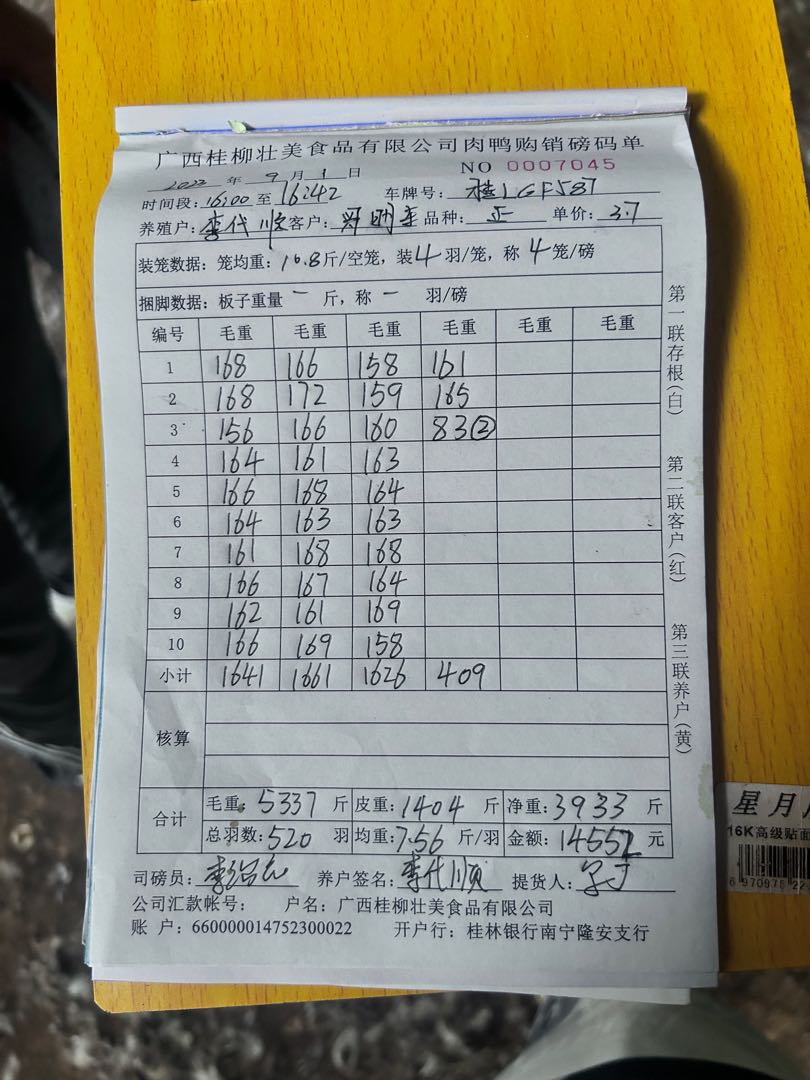 广西桂柳壮美食品有限公司肉鸭购销磅码单
2022 年 9 月 1 日 NO 0007045
时间段: 16:00 至 16:42 车牌号: 桂LGF587
养殖户: 李代顺 客户: 明 品种: 正 单价: 3.7
装笼数据: 笼均重: 10.8 斤/空笼, 装 4 羽/笼, 称 4 笼/磅
捆脚数据: 板子重量 一 斤, 称 一 羽/磅
编号 毛重 毛重 毛重 毛重 毛重 毛重
1 168 166 158 161
2 168 172 159 165
3 156 166 160 83②
4 164 161 163
5 166 168 164
6 164 163 163
7 161 168 168
8 166 167 164
9 162 161 169
10 166 169 158
小计 1641 1661 1626 409
核算
合计 毛重: 5337 斤 皮重: 1404 斤 净重: 3933 斤
总羽数: 520 羽 均重: 7.56 斤/羽 金额: 14552 元
司磅员: 养户签名: 李代顺 提货人:
公司汇款帐号: 户名: 广西桂柳壮美食品有限公司
账 户: 660000014752300022 开户行: 桂林银行南宁隆安支行
第一联存根(白)
第二联客户(红)
第三联养户(黄)
星月
16K高级贴面
6 970975 22